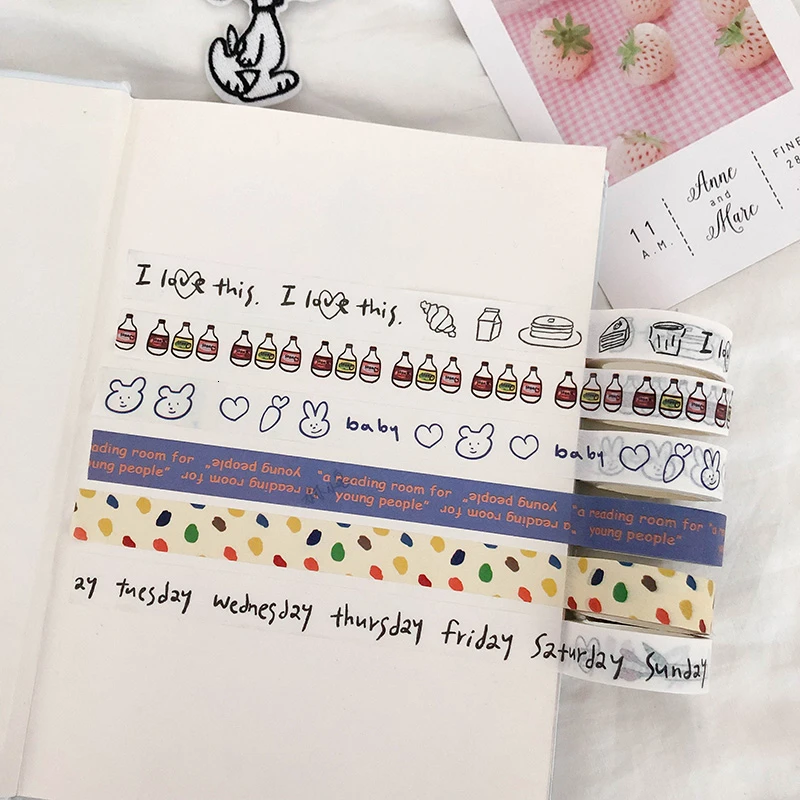 Anne
and
Marc
11
A.M.
FINE
28
I love this. I love this. I lo
baby baby
ading room for "a reading room for young people" "a reading room for "a reading room for
oung people" young people" a reading room for young people"
ay tuesday wednesday thursday friday Saturday Sunday